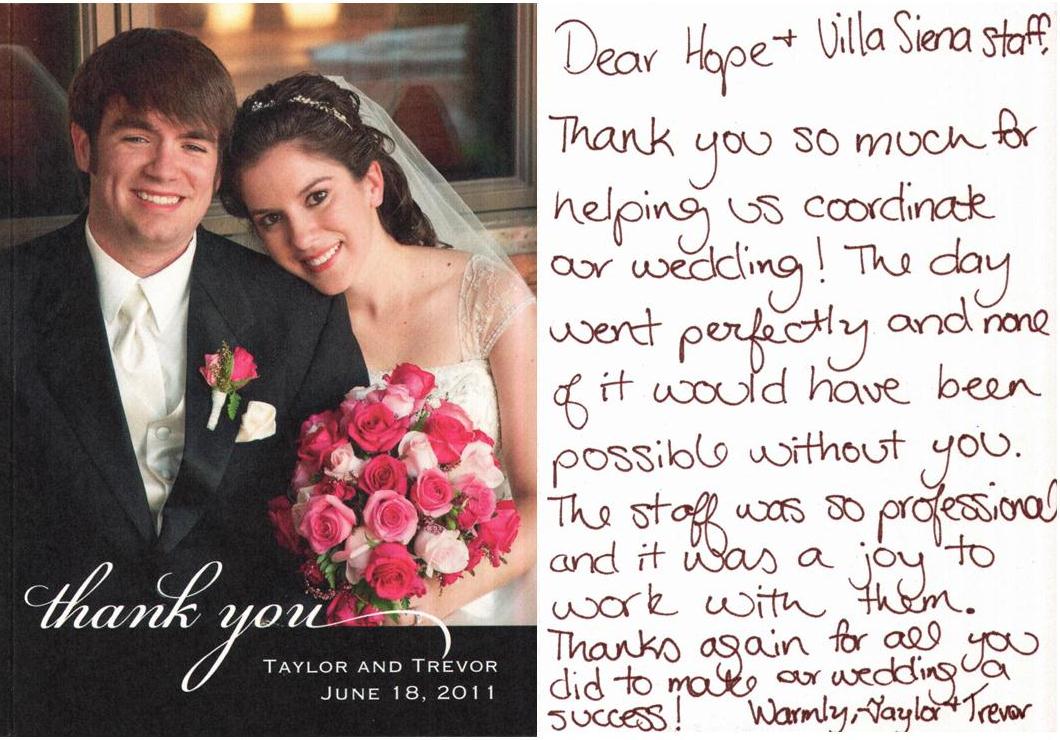 thank you
TAYLOR AND TREVOR
JUNE 18, 2011
Dear Hope + Villa Siena staff,
Thank you so much for
helping us coordinate
our wedding! The day
went perfectly and none
of it would have been
possible without you.
The staff was so professional
and it was a joy to
work with them.
Thanks again for all you
did to make our wedding a
success! Warmly, Taylor + Trevor